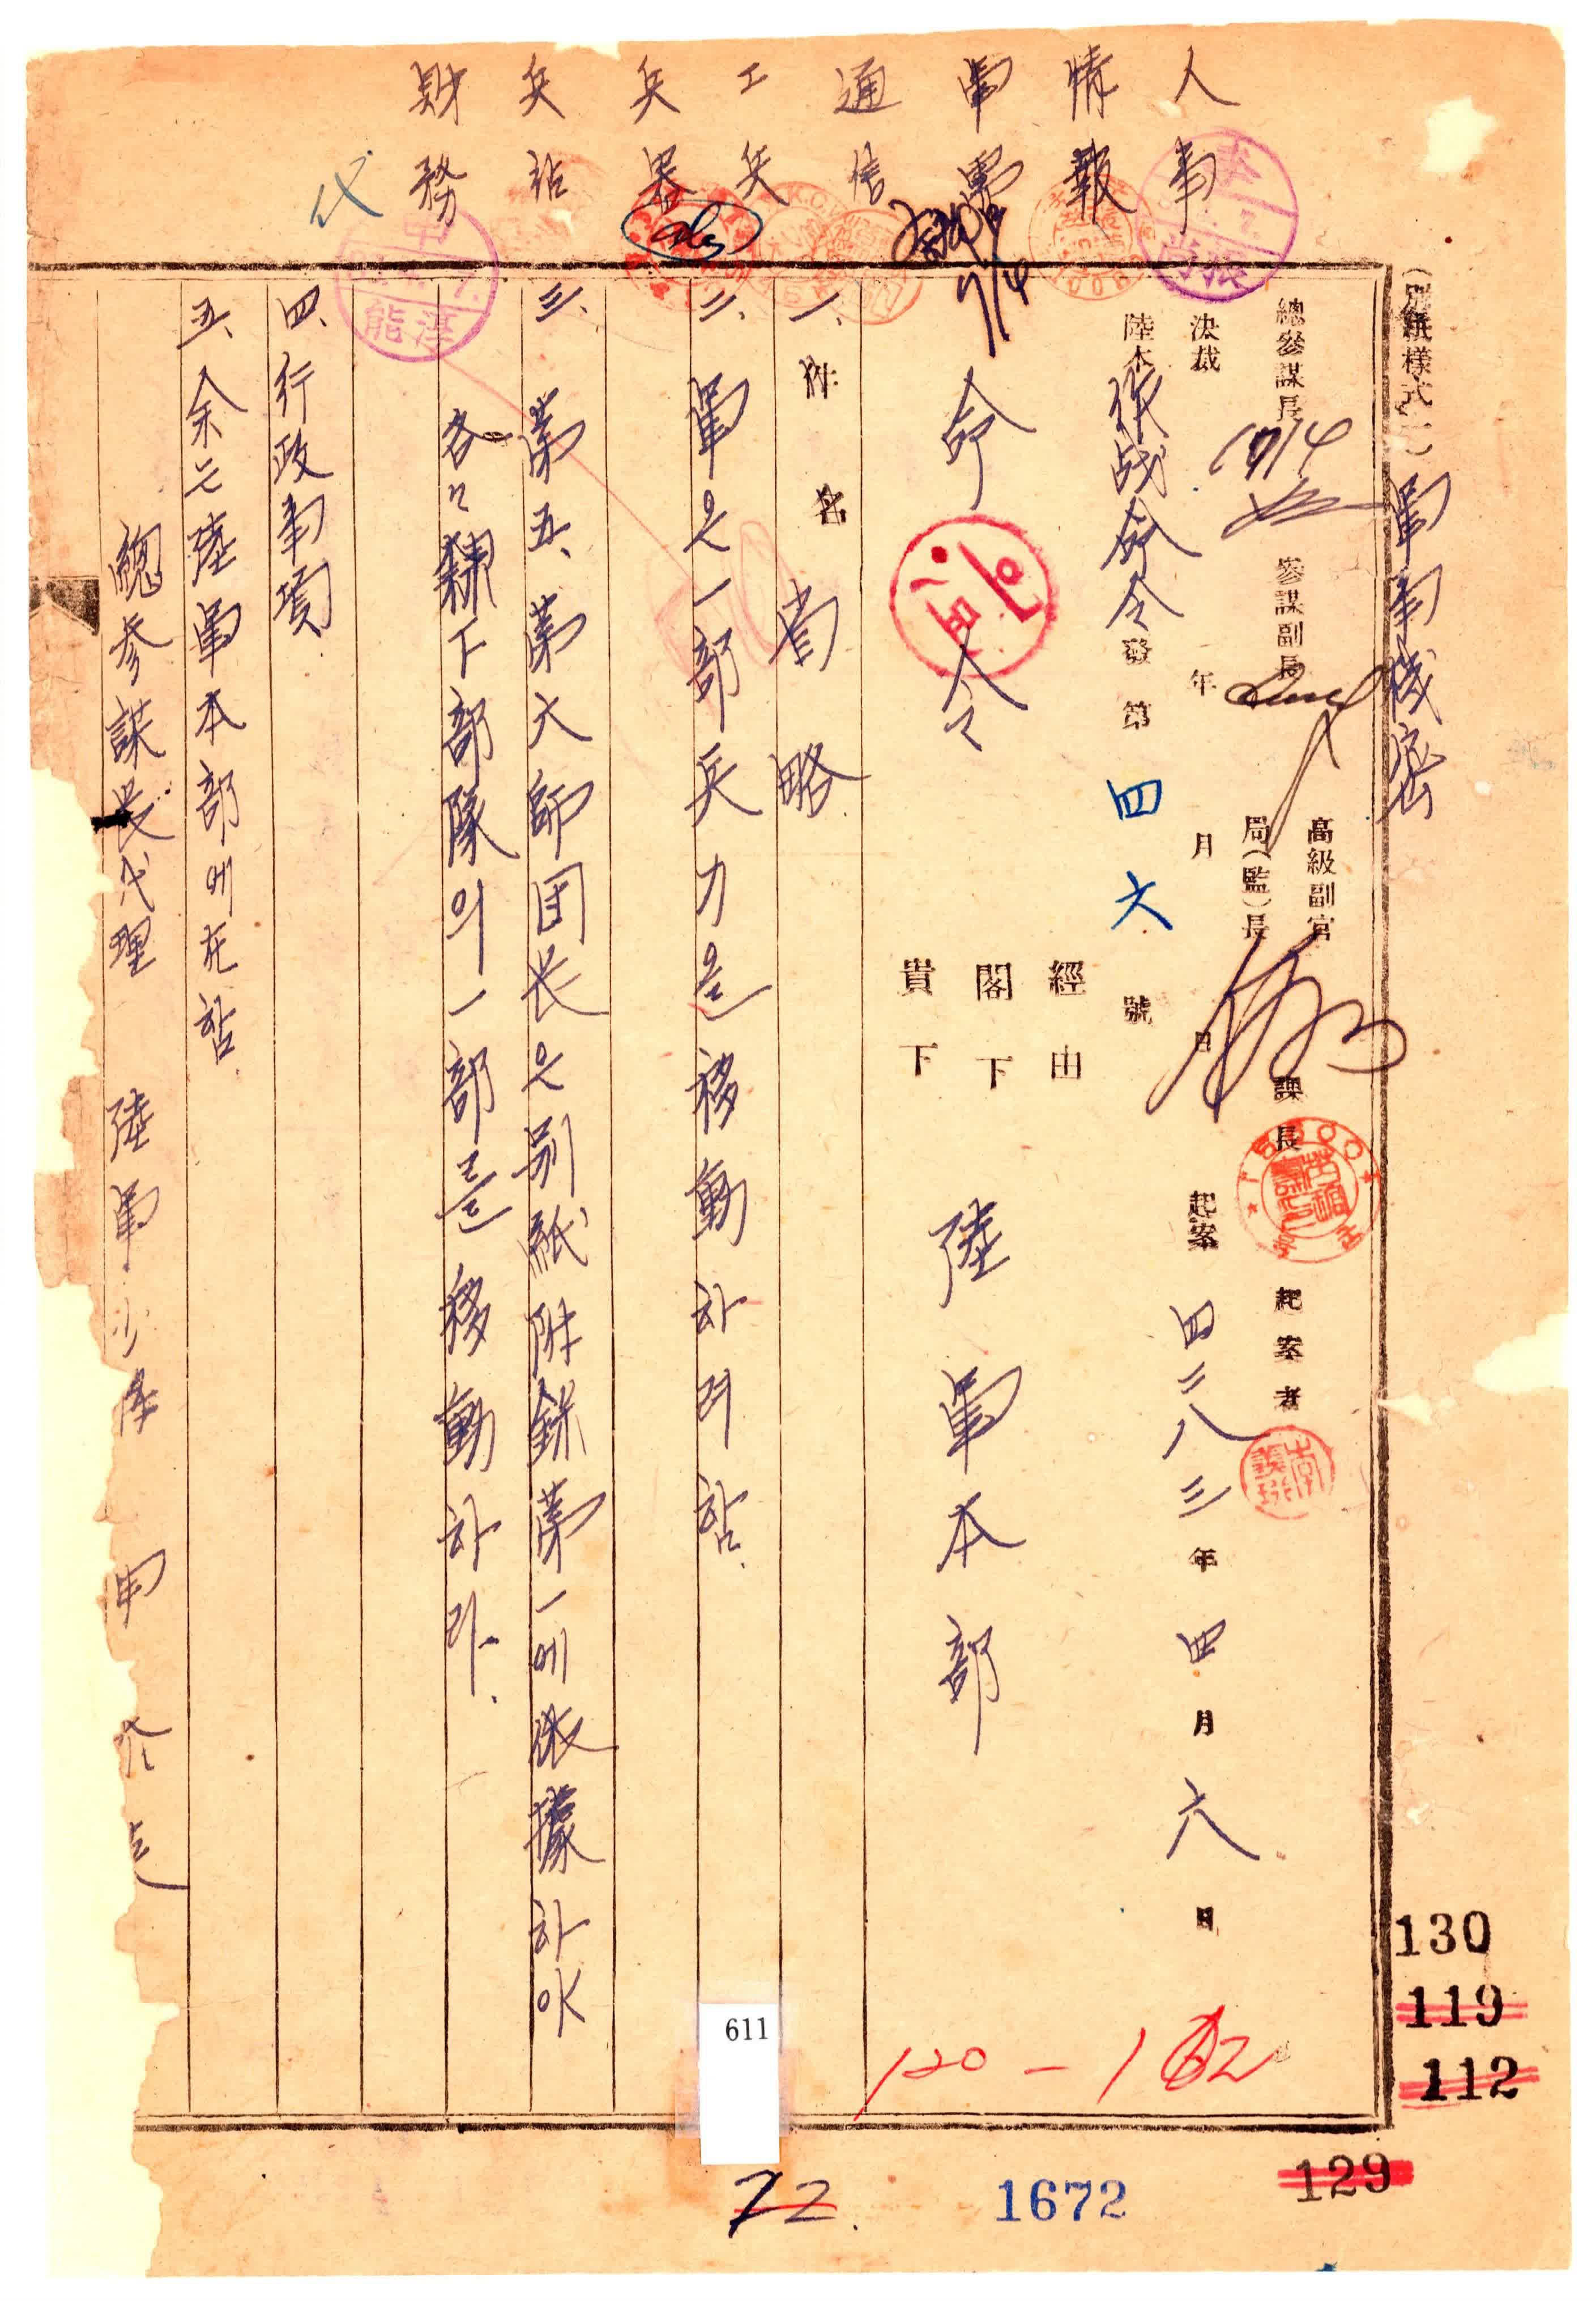 人事
情報
軍需
通信
工兵
兵器
兵站
財務
代
(別紙樣式一)
軍事機密
總參謀長
7/4
參謀副長
高級副官
局(監)長
課長
起案者
決裁 年 月 日
起案 四二八三年 四月 六日
陸本作戰命令發第四六號
經由
閣下
貴下
命令
陸軍本部
7/4
一、件名 省略
二、軍은一部兵力을移動하려함.
三、第五、第六師団长은別紙附錄第一에依據하야
各々隸下部隊의一部를移動하라.
四、行政事項
五、余는陸軍本部에在함
總參謀長代理 陸軍少 申
130
119
112
129
120-162
611
1672
72.